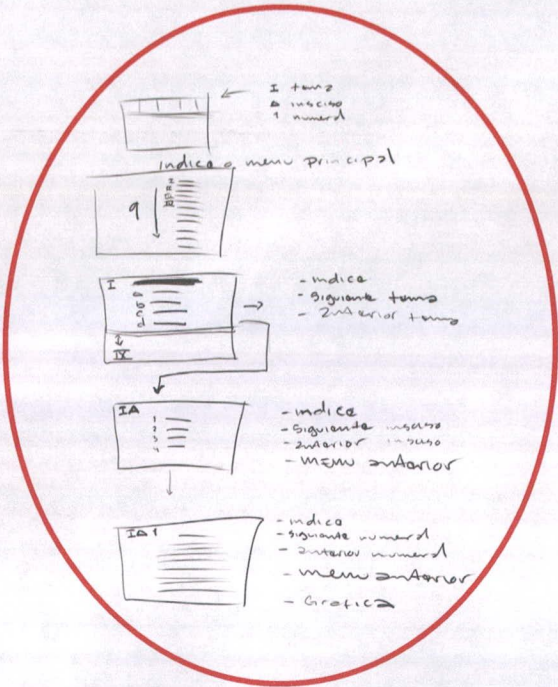 I tema
A insciso
1 numeral
indice o menu principal
I
II
III
IV
9
I
A
B
C
D
- indice
- Siguiente tema
- anterior tema
IV
IA
1
2
3
4
- indice
- siguiente insciso
- anterior insciso
- menu anterior
IA 1
- indice
- siguiente numeral
- anterior numeral
- menu anterior
- Grafica